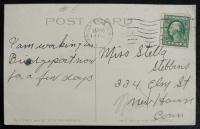 POST CARD
I am working in
Bridgeport now
for a few days
Miss Stella
Stebbins
334 Elm St
New Haven
Conn